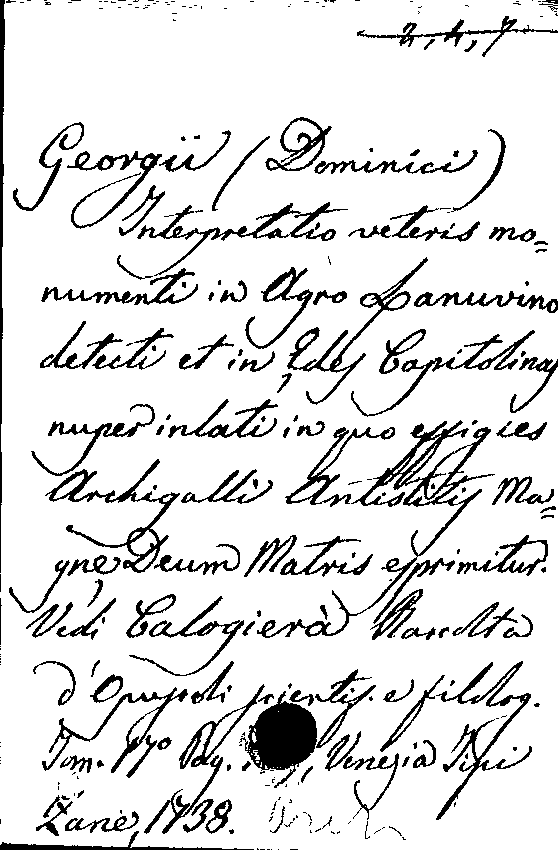 2, 4, 7
Georgii (Dominici)
Interpretatio veteris mo=
numenti in Agro Lanuvino
detecti et in Ędes Capitolinas
nuper inlati in quo effigies
Archigalli Antistitis Ma=
gnę Deum Matris exprimitur.
Vedi Calogierà Raccolta
d'Opuscoli scientif. e filolog.
Tom. 17° Pag. , Venezia Tipi
Zane, 1738.